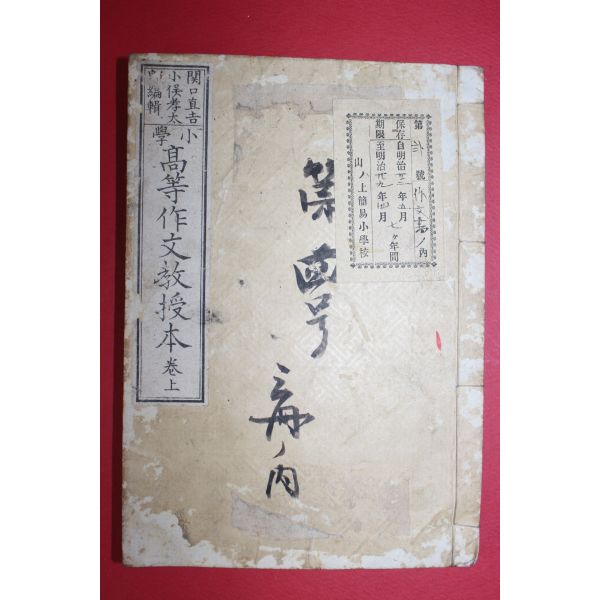 関口直吉
小俣孝太
編輯
小學
高等作文教授本 巻上
第四号
三冊ノ内
第弐號作文書ノ内
保存自明治廿二年五月
七ヶ年間
期限至明治廿九年四月
山ノ上簡易小學校